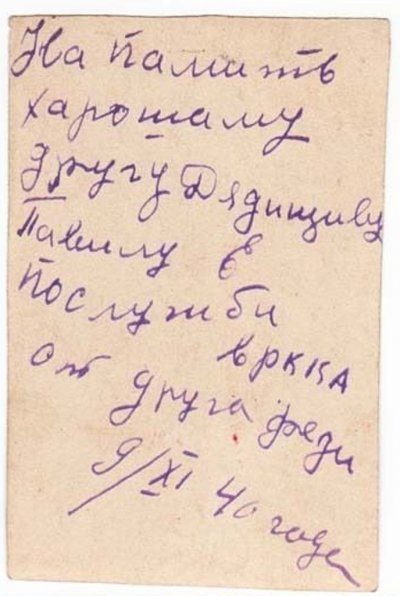 На памить
харошаму
другу Дядищиву
Павилу Е
по служби
в РККА
от друга феди
9/XI 40 года